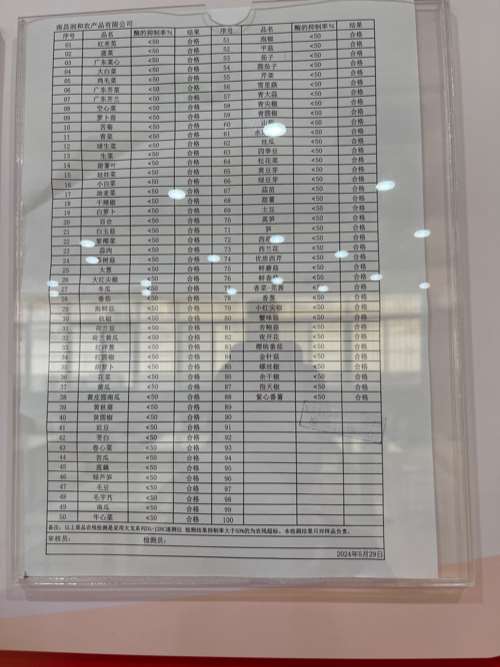 南昌润和农产品有限公司
序号 品名 酶的抑制率% 结果 序号 品名 酶的抑制率% 结果
01 红米苋 <50 合格 51 泡椒 <50 合格
02 菠菜 <50 合格 52 平菇 <50 合格
03 广东菜心 <50 合格 53 茄子 <50 合格
04 大白菜 <50 合格 54 圆茄子 <50 合格
05 鸡毛菜 <50 合格 55 芹菜 <50 合格
06 广东芥菜 <50 合格 56 青皮藕 <50 合格
07 广东芥兰 <50 合格 57 青大蒜 <50 合格
08 空心菜 <50 合格 58 青尖椒 <50 合格
09 萝卜苗 <50 合格 59 青圆椒 <50 合格
10 苦菊 <50 合格 60 <50 合格
11 青菜 <50 合格 61 <50 合格
12 球生菜 <50 合格 62 丝瓜 <50 合格
13 生菜 <50 合格 63 四季豆 <50 合格
14 甜薯叶 <50 合格 64 松花菜 <50 合格
15 娃娃菜 <50 合格 65 黄豆芽 <50 合格
16 小白菜 <50 合格 66 绿豆芽 <50 合格
17 油麦菜 <50 合格 67 蒜苗 <50 合格
18 干辣椒 <50 合格 68 甜薯 <50 合格
19 白萝卜 <50 合格 69 土豆 <50 合格
20 百合 <50 合格 70 莴笋 <50 合格
21 白玉菇 <50 合格 71 笋 <50 合格
22 <50 合格 72 <50 合格
23 蒜肉 <50 合格 73 西兰花 <50 合格
24 茶树菇 <50 合格 74 优质西芹 <50 合格
25 大葱 <50 合格 75 鲜蘑菇 <50 合格
26 大红尖椒 <50 合格 76 鲜香菇 <50 合格
27 冬瓜 <50 合格 77 香菜-芫荽 <50 合格
28 番茄 <50 合格 78 香葱 <50 合格
29 海鲜菇 <50 合格 79 小红尖椒 <50 合格
30 杭椒 <50 合格 80 蟹味菇 <50 合格
31 荷兰豆 <50 合格 81 杏鲍菇 <50 合格
32 荷兰黄瓜 <50 合格 82 夜开花 <50 合格
33 红洋葱 <50 合格 83 樱桃番茄 <50 合格
34 红圆椒 <50 合格 84 金针菇 <50 合格
35 胡萝卜 <50 合格 85 螺丝椒 <50 合格
36 花菜 <50 合格 86 余干椒 <50 合格
37 黄瓜 <50 合格 87 指天椒 <50 合格
38 黄皮圆南瓜 <50 合格 88 紫心番薯 <50 合格
39 黄丝瓜 <50 合格 89
40 黄圆椒 <50 合格 90
41 豇豆 <50 合格 91
42 茭白 <50 合格 92
43 卷心菜 <50 合格 93
44 苦瓜 <50 合格 94
45 莲藕 <50 合格 95
46 绿芦笋 <50 合格 96
47 毛豆 <50 合格 97
48 毛芋艿 <50 合格 98
49 南瓜 <50 合格 99
50 牛心菜 <50 合格 100
备注：以上菜品农残检测是采用 速测仪 检测结果抑制率大于50%的为农残超标，本检测结果只对样品负责。
审核员： 检测员：
2024年5月29日